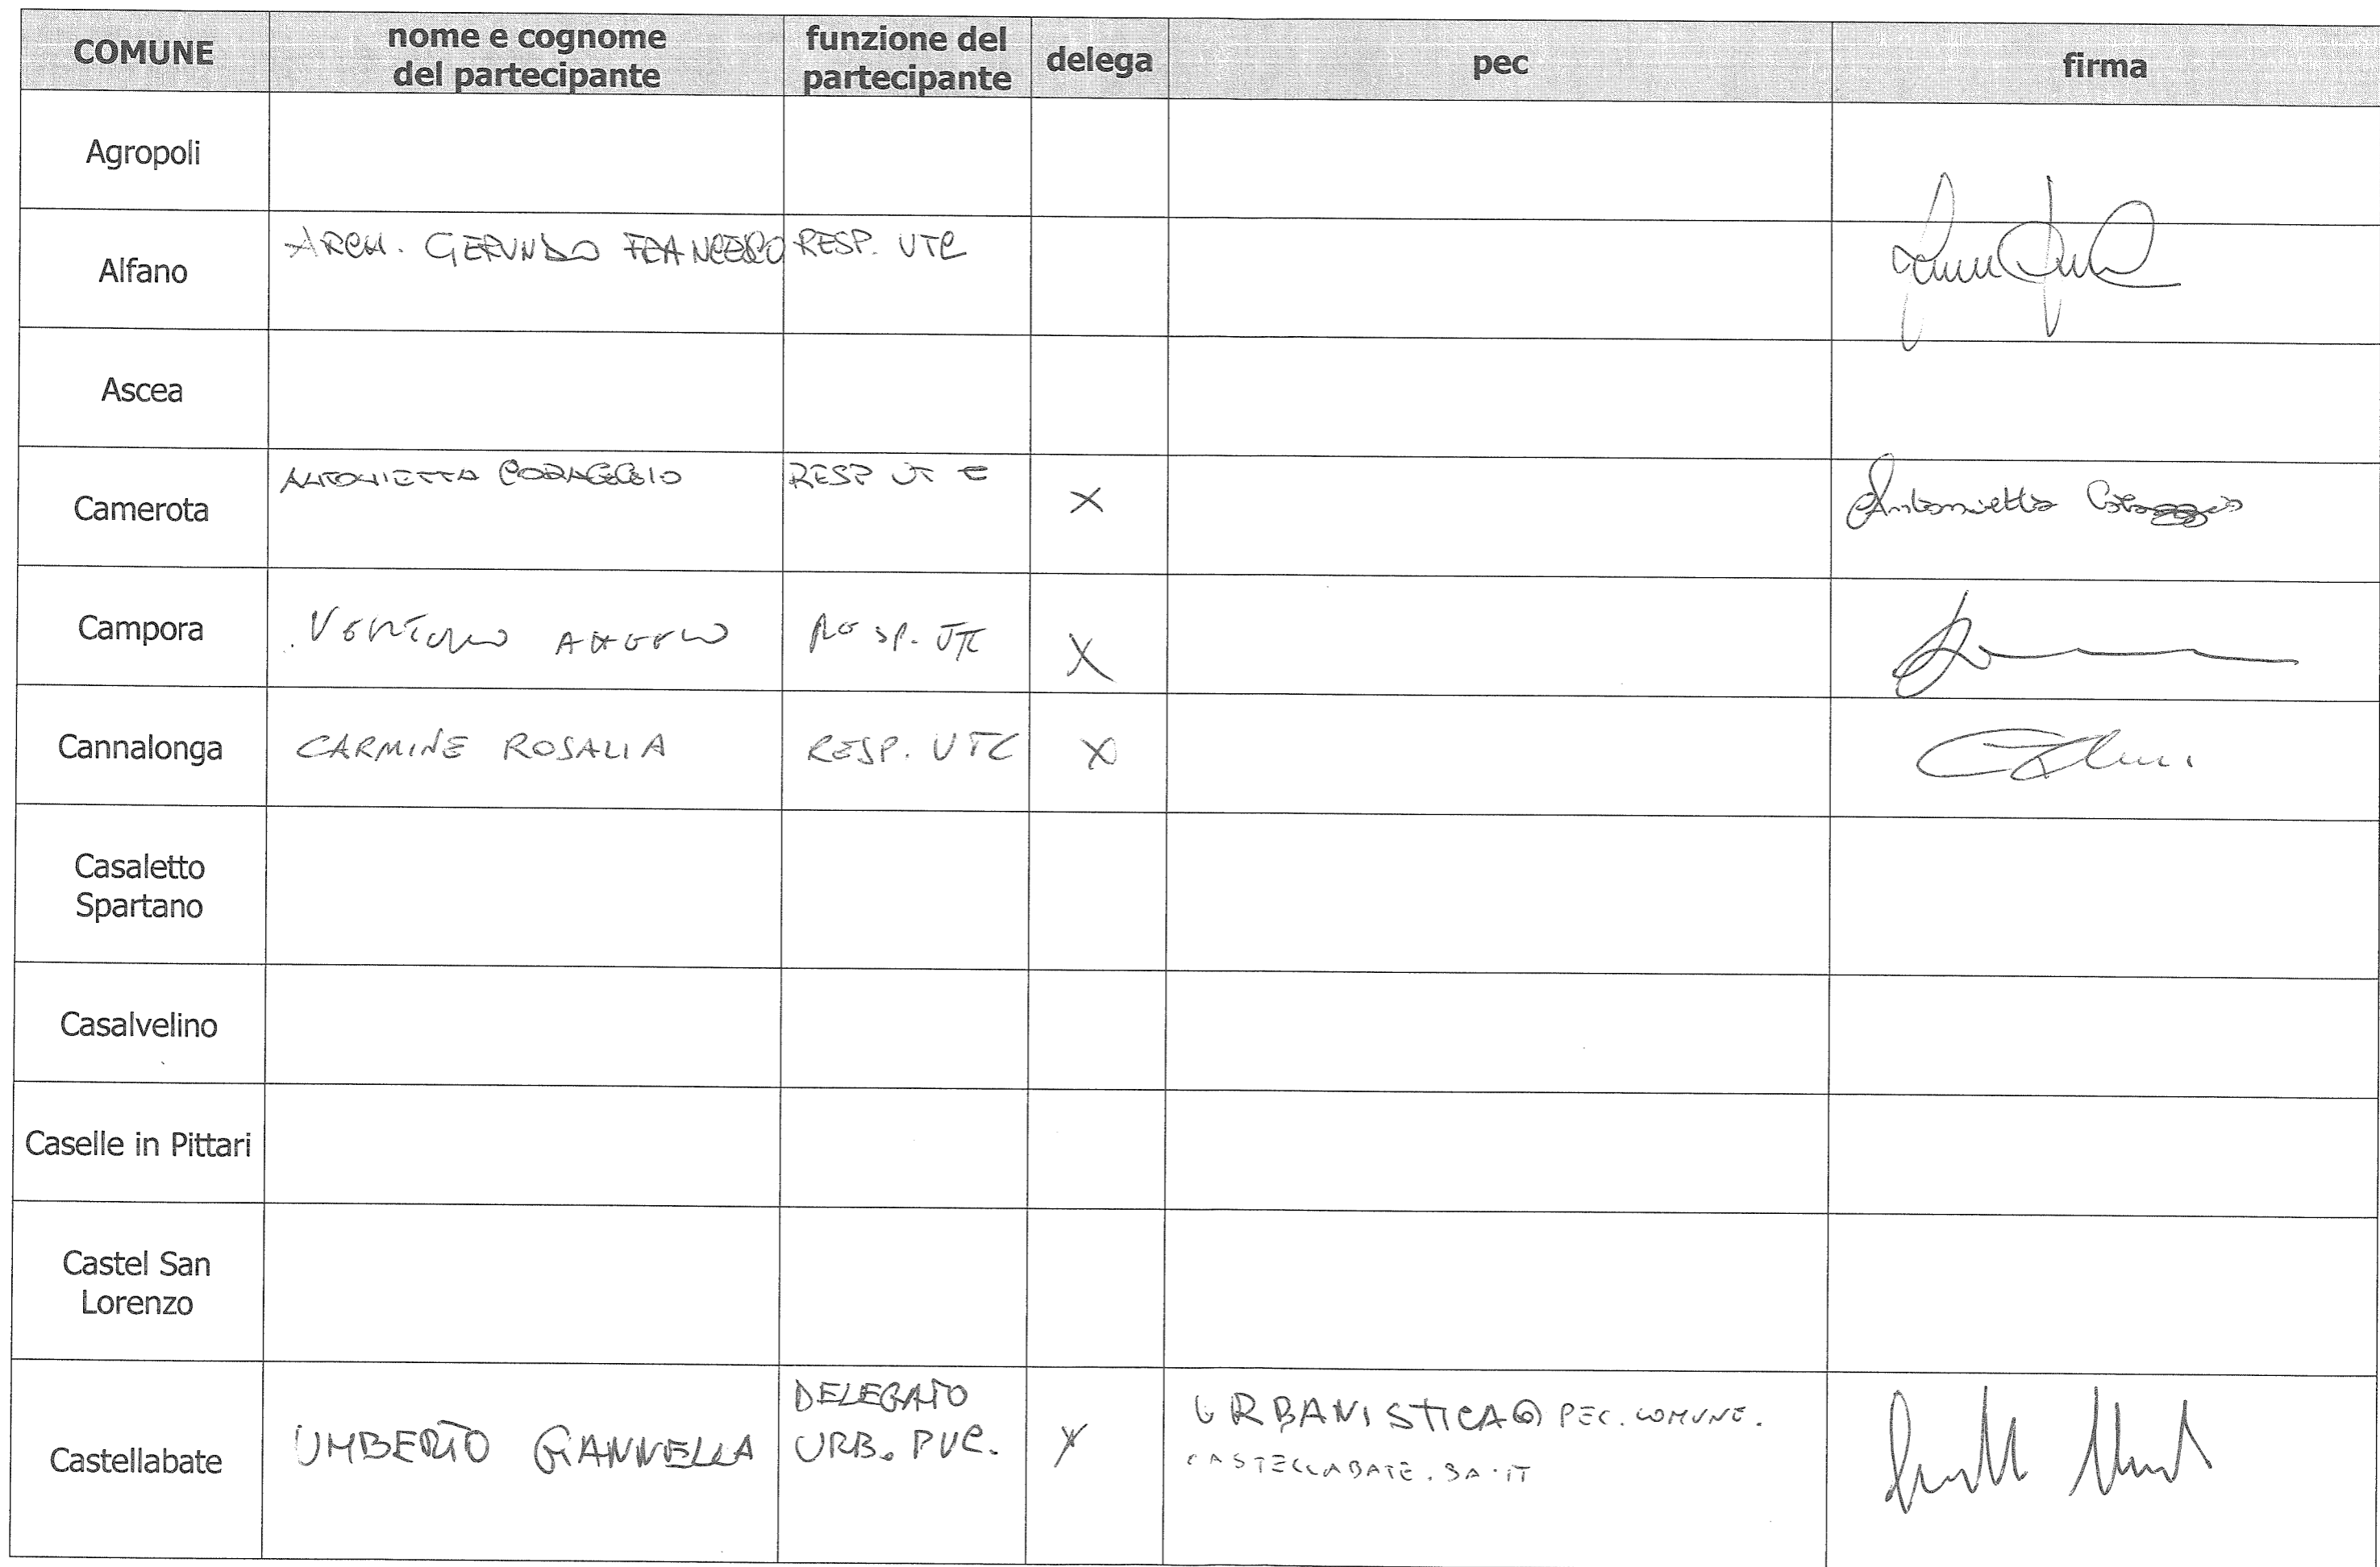 COMUNE nome e cognome del partecipante funzione del partecipante delega pec firma
Agropoli
Alfano ARCH. GERUNDO FRANCESCO RESP. UTC
Ascea
Camerota ANTONIETTA CORAGGIO RESP UTC X Antonietta Coraggio
Campora ANGELO RESP. UTC X
Cannalonga CARMINE ROSALIA RESP. UTC X
Casaletto
Spartano
Casalvelino
Caselle in Pittari
Castel San
Lorenzo
Castellabate UMBERTO GIANNELLA DELEGATO URB. PUC. X URBANISTICA@PEC.COMUNE.
CASTELLABATE.SA.IT